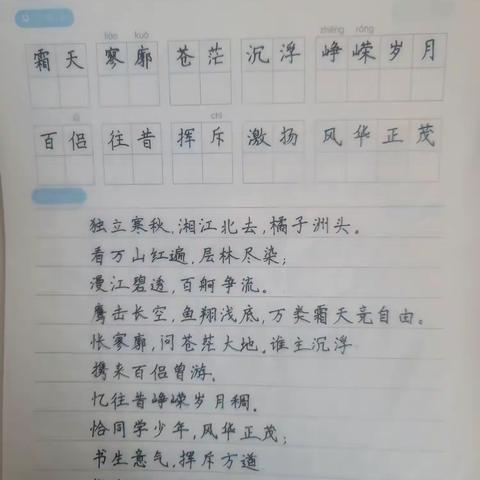 liáo kuò zhēng róng
霜天 寥廓 苍茫 沉浮 峥嵘岁月
lǚ chì
百侣 往昔 挥斥 激扬 风华正茂
独立寒秋,湘江北去,橘子洲头。
看万山红遍,层林尽染;
漫江碧透,百舸争流。
鹰击长空,鱼翔浅底,万类霜天竞自由。
怅寥廓,问苍茫大地。谁主沉浮
携来百侣曾游。
忆往昔峥嵘岁月稠。
恰同学少年,风华正茂;
书生意气,挥斥方遒